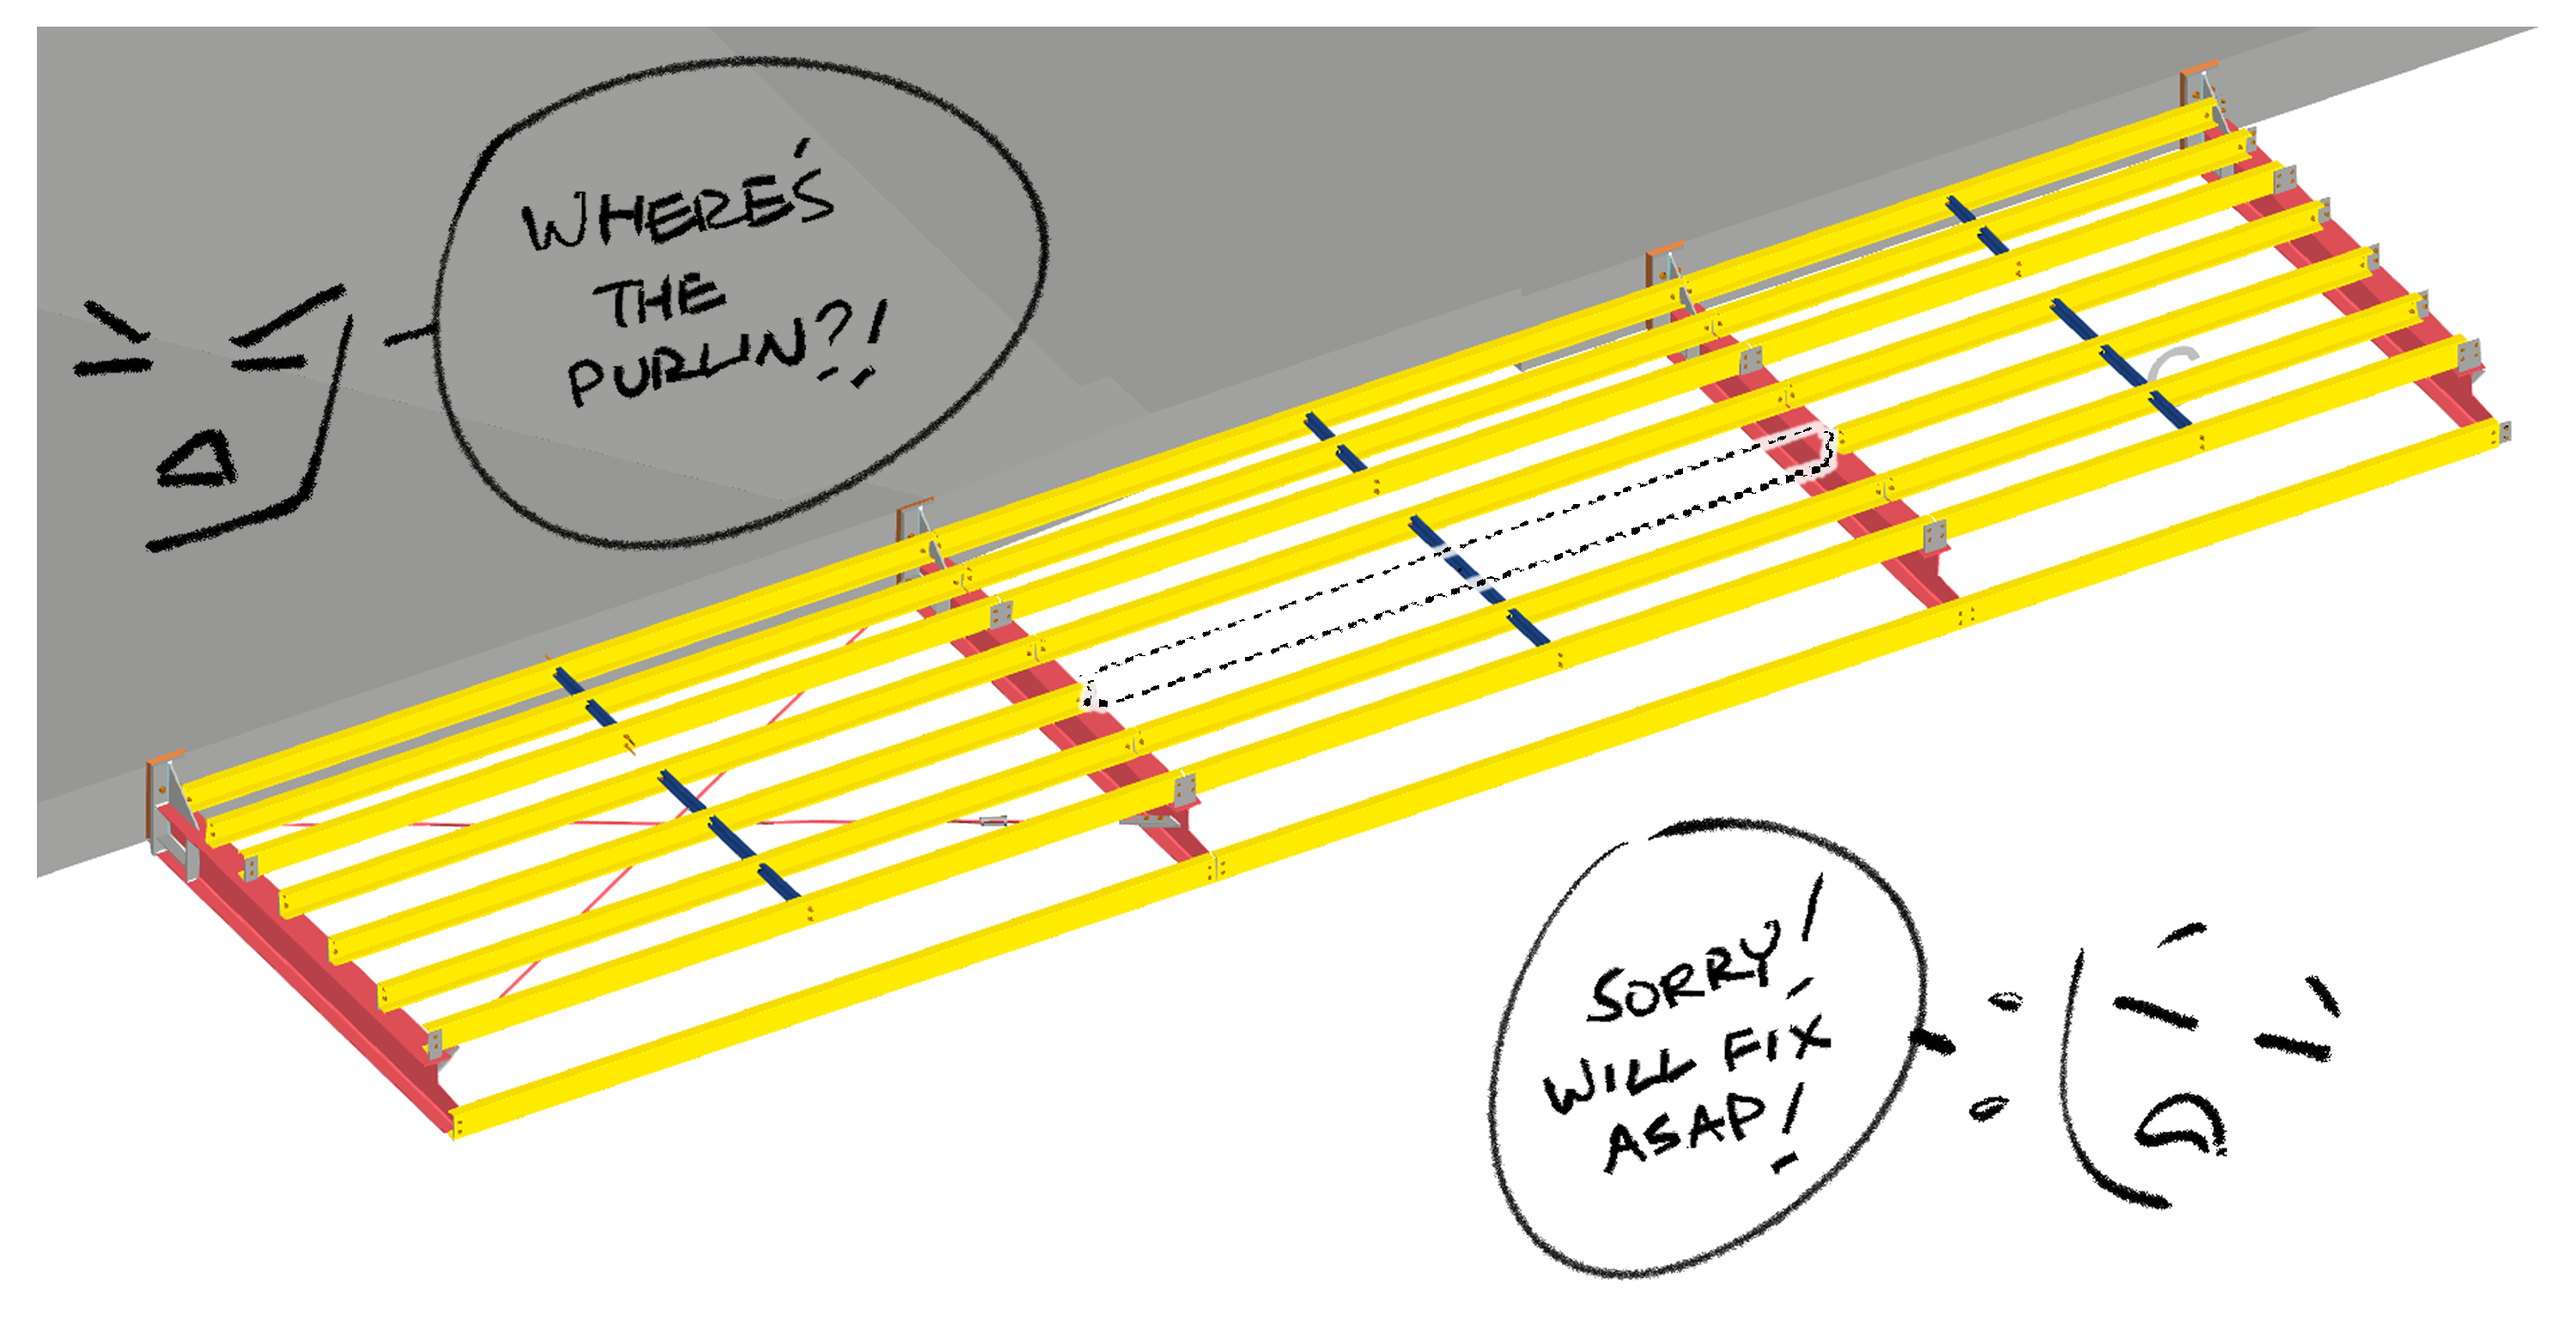 WHERE'S
THE
PURLIN?!
SORRY!
WILL FIX
ASAP!